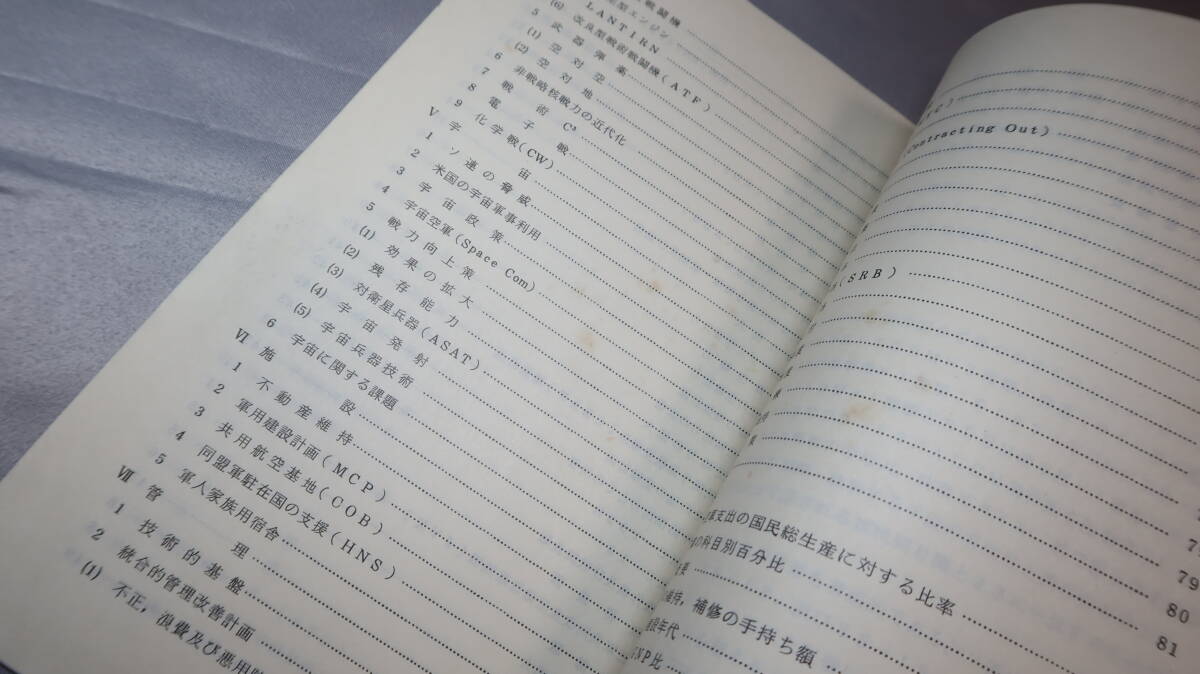 戦闘機
型エンジン
LANTIRN
(6) 改良型戦術戦闘機(ATF)
5 武器弾薬
(1) 空対空
(2) 空対地
6 非戦略核戦力の近代化
7 戦術C³
8 電子戦
9 化学戦(CW)
V 宇宙
1 ソ連の脅威
2 米国の宇宙軍事利用
3 宇宙政策
4 宇宙空軍(Space Com)
5 戦力向上策
(1) 効果の拡大
(2) 残存能力
(3) 対衛星兵器(ASAT)
(4) 宇宙発射
(5) 宇宙兵器技術
6 宇宙に関する課題
VI 施設
1 不動産維持
2 軍用建設計画(MCP)
3 共用航空基地(COB)
4 同盟軍駐在国の支援(HNS)
5 軍人家族用宿舎
VII 管理
1 技術的基盤
2 統合的管理改善計画
(1) 不正,浪費及び悪用
C)
ontracting Out)
(SRB)
支出の国民総生産に対する比率 79
の科目別百分比 80
81
維持,補修の手持ち額
設年代
NP比